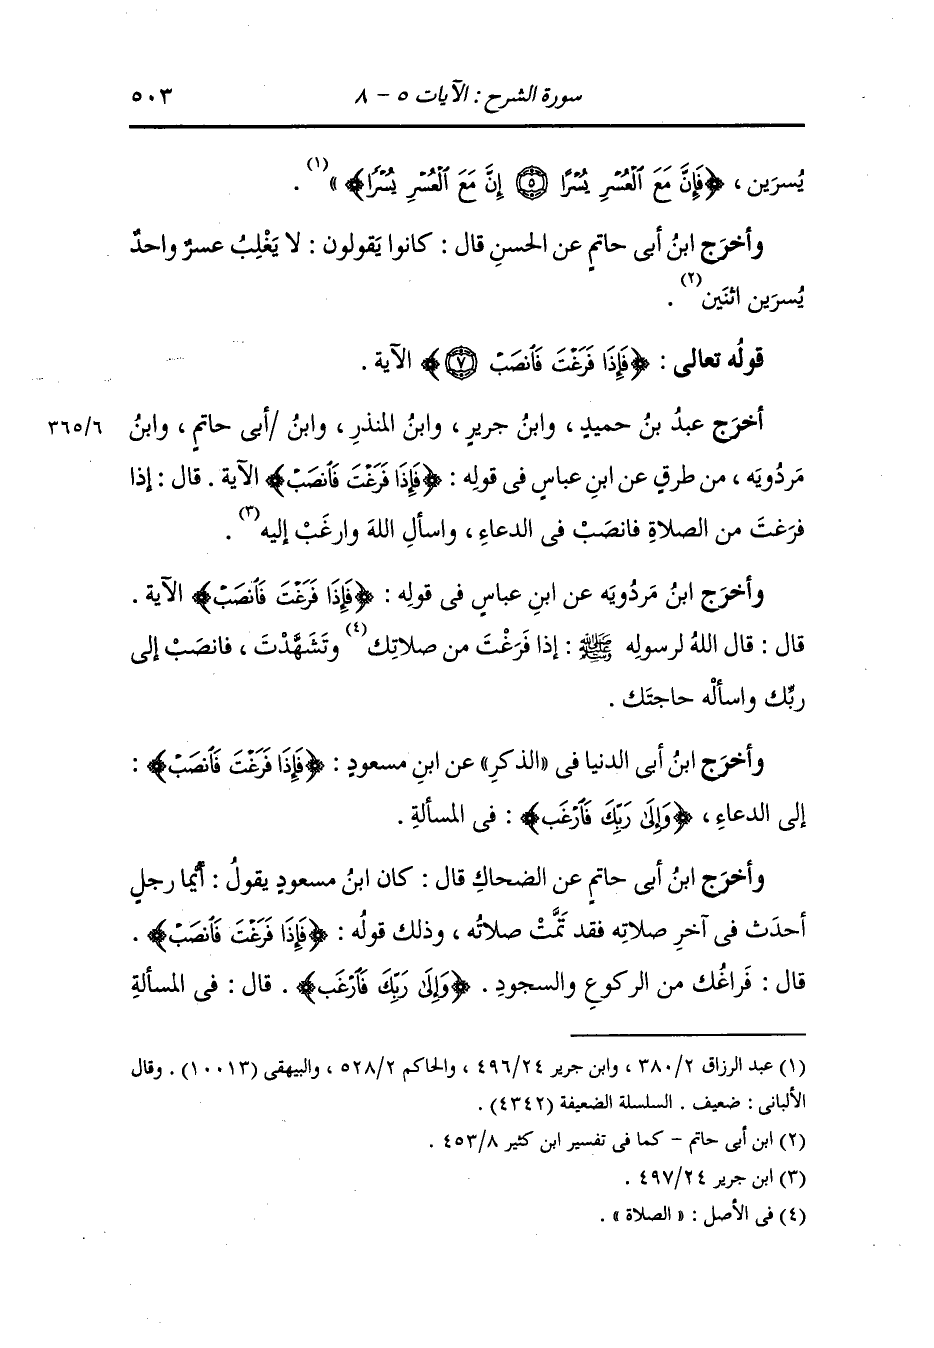 سورة الشرح : الآيات ٥ - ٨ ٥٠٣
يُسرَين ، ﴿فَإِنَّ مَعَ ٱلْعُسْرِ يُسْرًا ۝٥ إِنَّ مَعَ ٱلْعُسْرِ يُسْرًا﴾ »(١) .
وأخرَج ابنُ أبى حاتمٍ عن الحسنِ قال : كانوا يَقولون : لا يَغْلِبُ عسرٌ واحدٌ
يُسرَين اثنَين(٢) .
قولُه تعالى : ﴿فَإِذَا فَرَغْتَ فَٱنصَبْ ۝٧﴾ الآية .
أخرَج عبدُ بنُ حميدٍ ، وابنُ جريرٍ ، وابنُ المنذرِ ، وابنُ /أبى حاتمٍ ، وابنُ ٣٦٥/٦
مَردُويَه ، من طرقٍ عن ابنِ عباسٍ فى قولِه : ﴿فَإِذَا فَرَغْتَ فَٱنصَبْ﴾ الآية . قال : إذا
فرَغتَ من الصلاةِ فانصَبْ فى الدعاءِ ، واسألِ اللهَ وارغَبْ إليه(٣) .
وأخرَج ابنُ مَردُويَه عن ابنِ عباسٍ فى قولِه : ﴿فَإِذَا فَرَغْتَ فَٱنصَبْ﴾ الآية .
قال : قال اللهُ لرسولِه ﷺ : إذا فَرَغْتَ من صلاتِك(٤) وتَشَهَّدْتَ ، فانصَبْ إلى
ربِّك واسألْه حاجتَك .
وأخرَج ابنُ أبى الدنيا فى «الذكرِ» عن ابنِ مسعودٍ : ﴿فَإِذَا فَرَغْتَ فَٱنصَبْ﴾ :
إلى الدعاءِ ، ﴿وَإِلَىٰ رَبِّكَ فَٱرْغَب﴾ : فى المسألةِ .
وأخرَج ابنُ أبى حاتمٍ عن الضحاكِ قال : كان ابنُ مسعودٍ يقولُ : أيُّما رجلٍ
أحدَث فى آخرِ صلاتِه فقد تَمَّتْ صلاتُه ، وذلك قولُه : ﴿فَإِذَا فَرَغْتَ فَٱنصَبْ﴾ .
قال : فَراغُك من الركوعِ والسجودِ . ﴿وَإِلَىٰ رَبِّكَ فَٱرْغَب﴾ . قال : فى المسألةِ
(١) عبد الرزاق ٣٨٠/٢ ، وابن جرير ٤٩٦/٢٤ ، والحاكم ٥٢٨/٢ ، والبيهقى (١٠٠١٣) . وقال
الألبانى : ضعيف . السلسلة الضعيفة (٤٣٤٢) .
(٢) ابن أبى حاتم - كما فى تفسير ابن كثير ٤٥٣/٨ .
(٣) ابن جرير ٤٩٧/٢٤ .
(٤) فى الأصل : « الصلاة » .